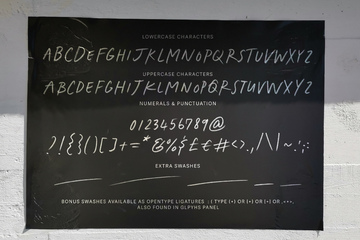 LOWERCASE CHARACTERS
ABCDEFGHIJKLMNOPQRSTUVWXYZ
UPPERCASE CHARACTERS
ABCDEFGHIJKLMNOPQRSTUVWXYZ
NUMERALS & PUNCTUATION
0123456789@
?!{}()[]+=*&%£€#<>,/\|~.:;
EXTRA SWASHES
BONUS SWASHES AVAILABLE AS OPENTYPE LIGATURES
ALSO FOUND IN GLPYHS PANEL